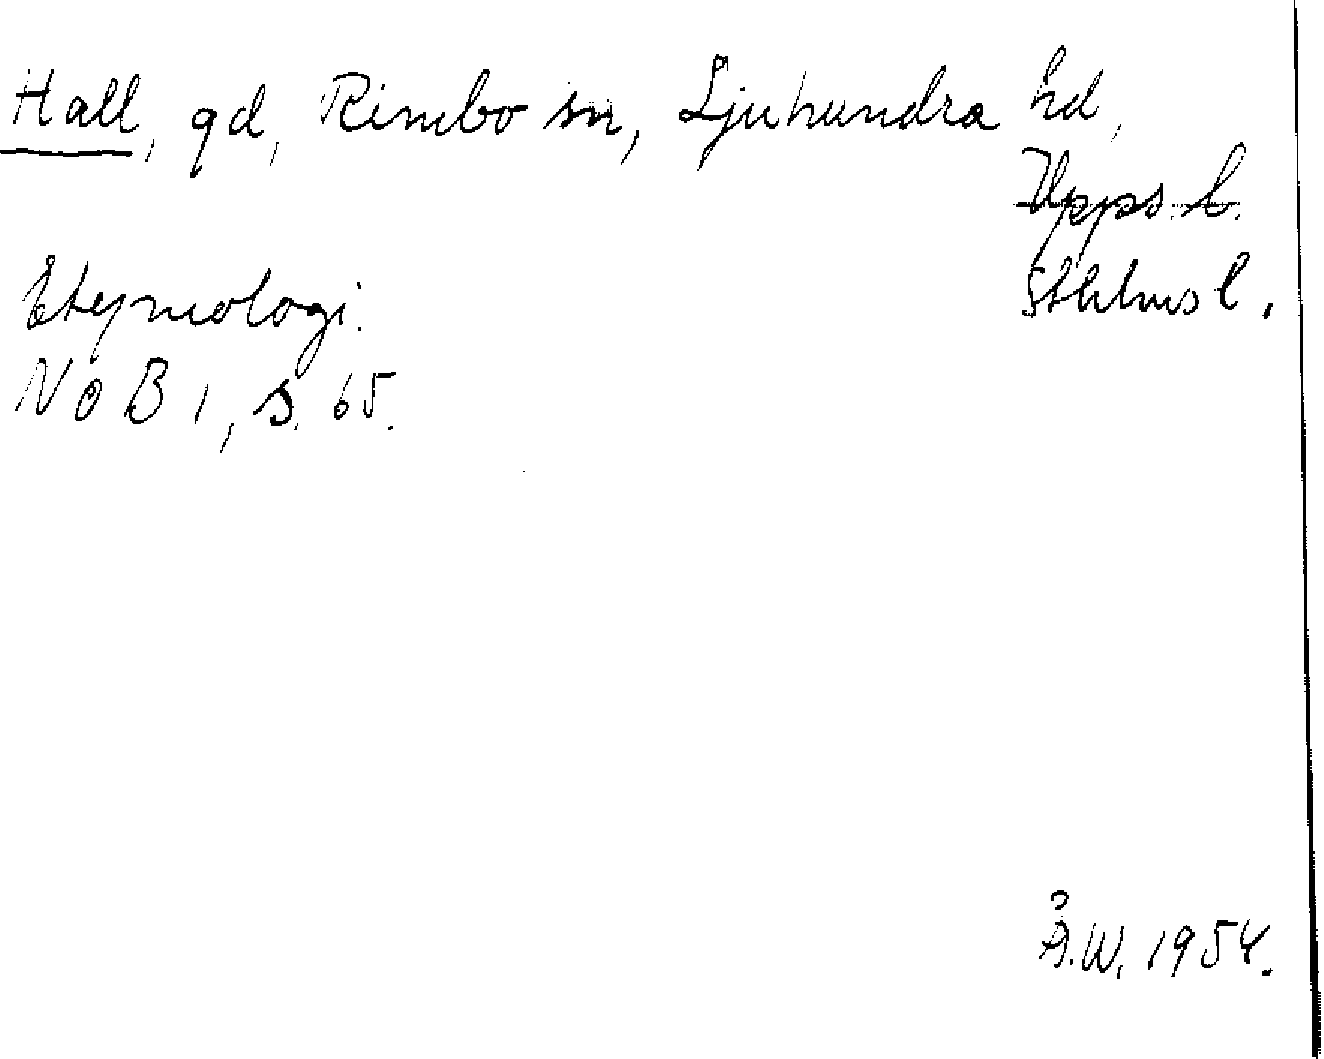 Hall, gd, Rimbo sn, Sjuhundra hd,
Upps. l.
Sthlms l.
Etymologi.
NoB 1, s. 65.
Å.W. 1954.